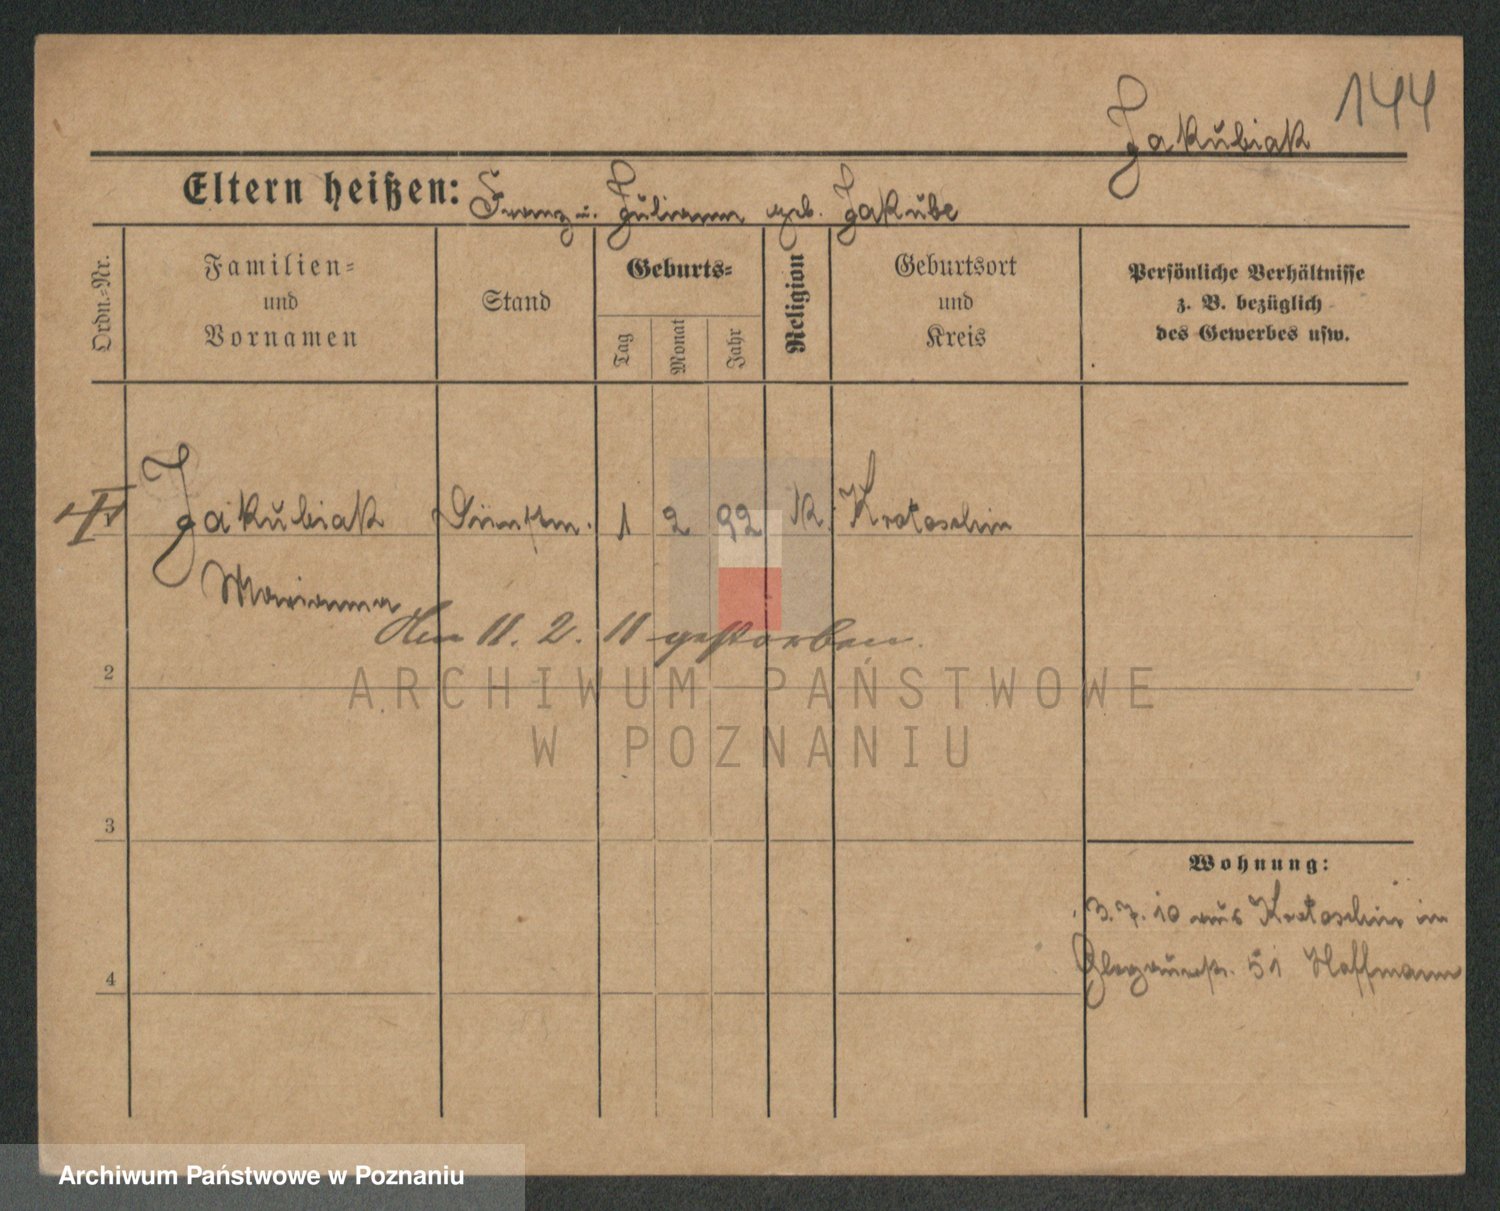 144
Jakubiak
Eltern heißen: Franz u. Julianna geb. Jakube
Ordn.-Nr.
Familien-
und
Vornamen
Stand
Geburts-
Tag
Monat
Jahr
Religion
Geburtsort
und
Kreis
Persönliche Verhältnisse
z. B. bezüglich
des Gewerbes usw.
Jakubiak Dienstm. 1 2 92 K. Krotoschin
Marianna
Am 11. 2. 11 gestorben.
2
3
4
Wohnung:
3.7.10 aus Krotoschin in
51 Hoffmann
ARCHIWUM PAŃSTWOWE
W POZNANIU
Archiwum Państwowe w Poznaniu